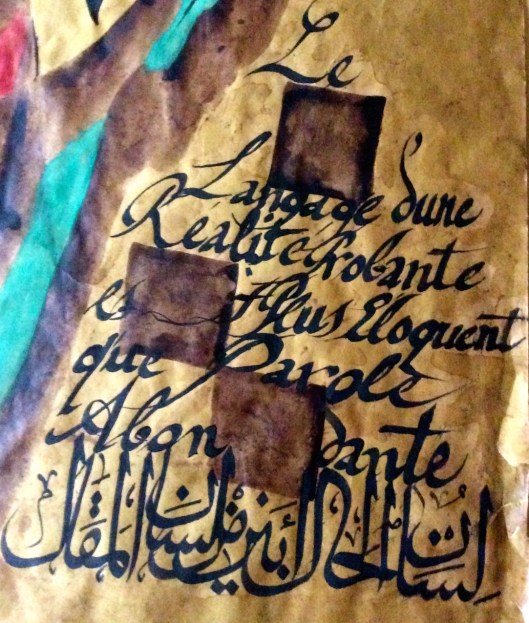 Le
Langage d'une
Réalité Probante
est Plus Eloquent
que Parole
Abondante
لسان الحال أبين من لسان المقال